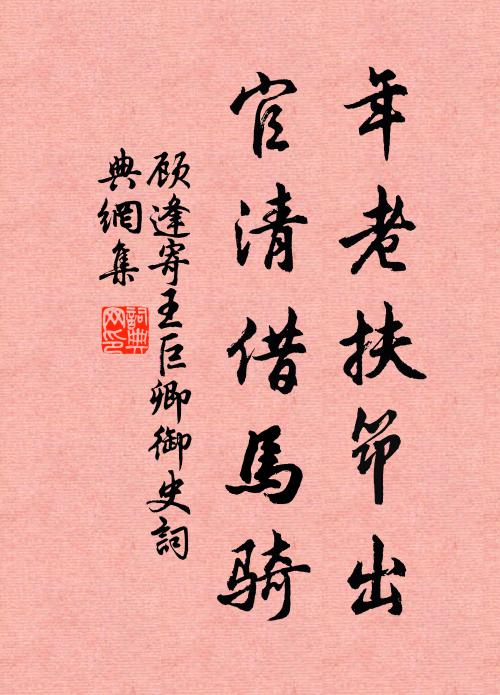 年老扶筇出
官清借馬骑
顾逢寄王臣卿御史詞
典網集
詞典
网印